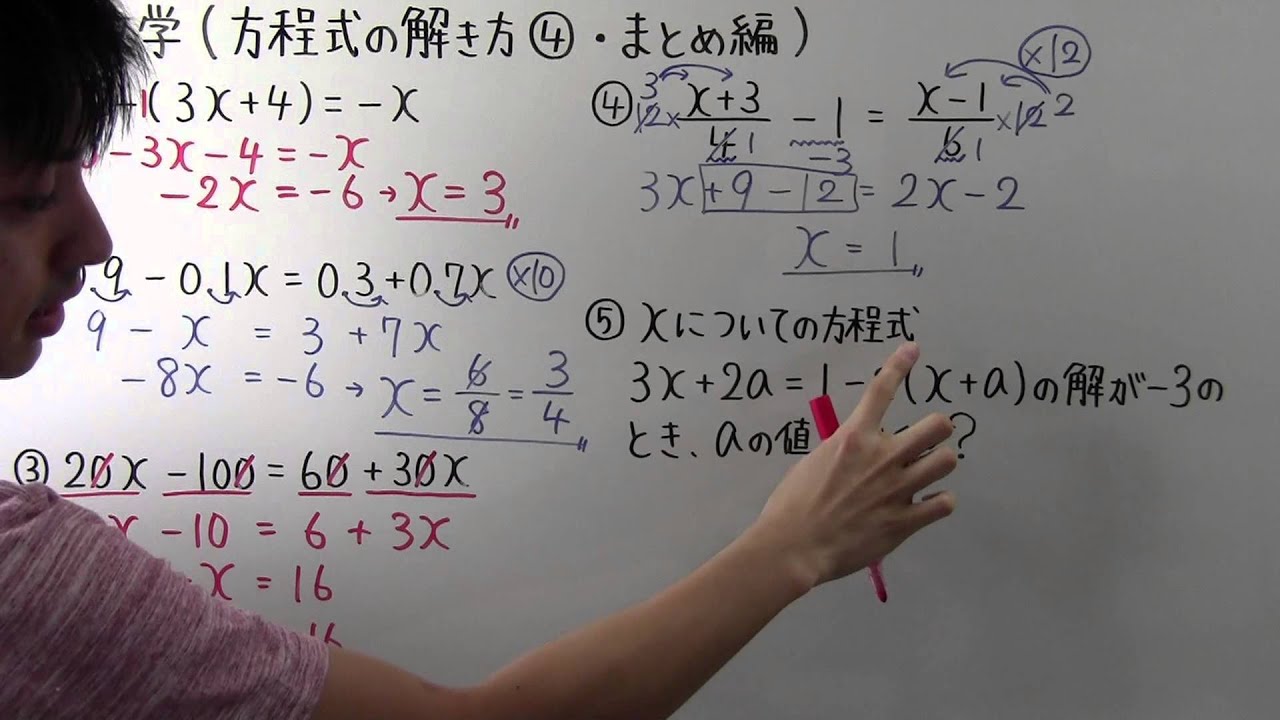 学(方程式の解き方④・まとめ編)
(3x+4)=-x
-3x-4=-x
-2x=-6→x=3
9-0.1x=0.3+0.7x ×10
9-x=3+7x
-8x=-6→x=6/8=3/4
③20x-100=60+30x
x-10=6+3x
x=16
16
④ 12× x+3/4 -1 = x-1/6 ×12 ×12
3 1 -3 1 2
3x+9-12=2x-2
x=1
⑤xについての方程式
3x+2a=1-(x+a)の解が-3の
とき、aの値?